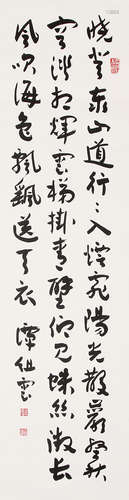 晓登泰山道行行入烟宛阳光散岩壑秋
容淡相辉云梯掛青壁仰见蛛丝微长
风吹海色飘飘送天衣 谭组云